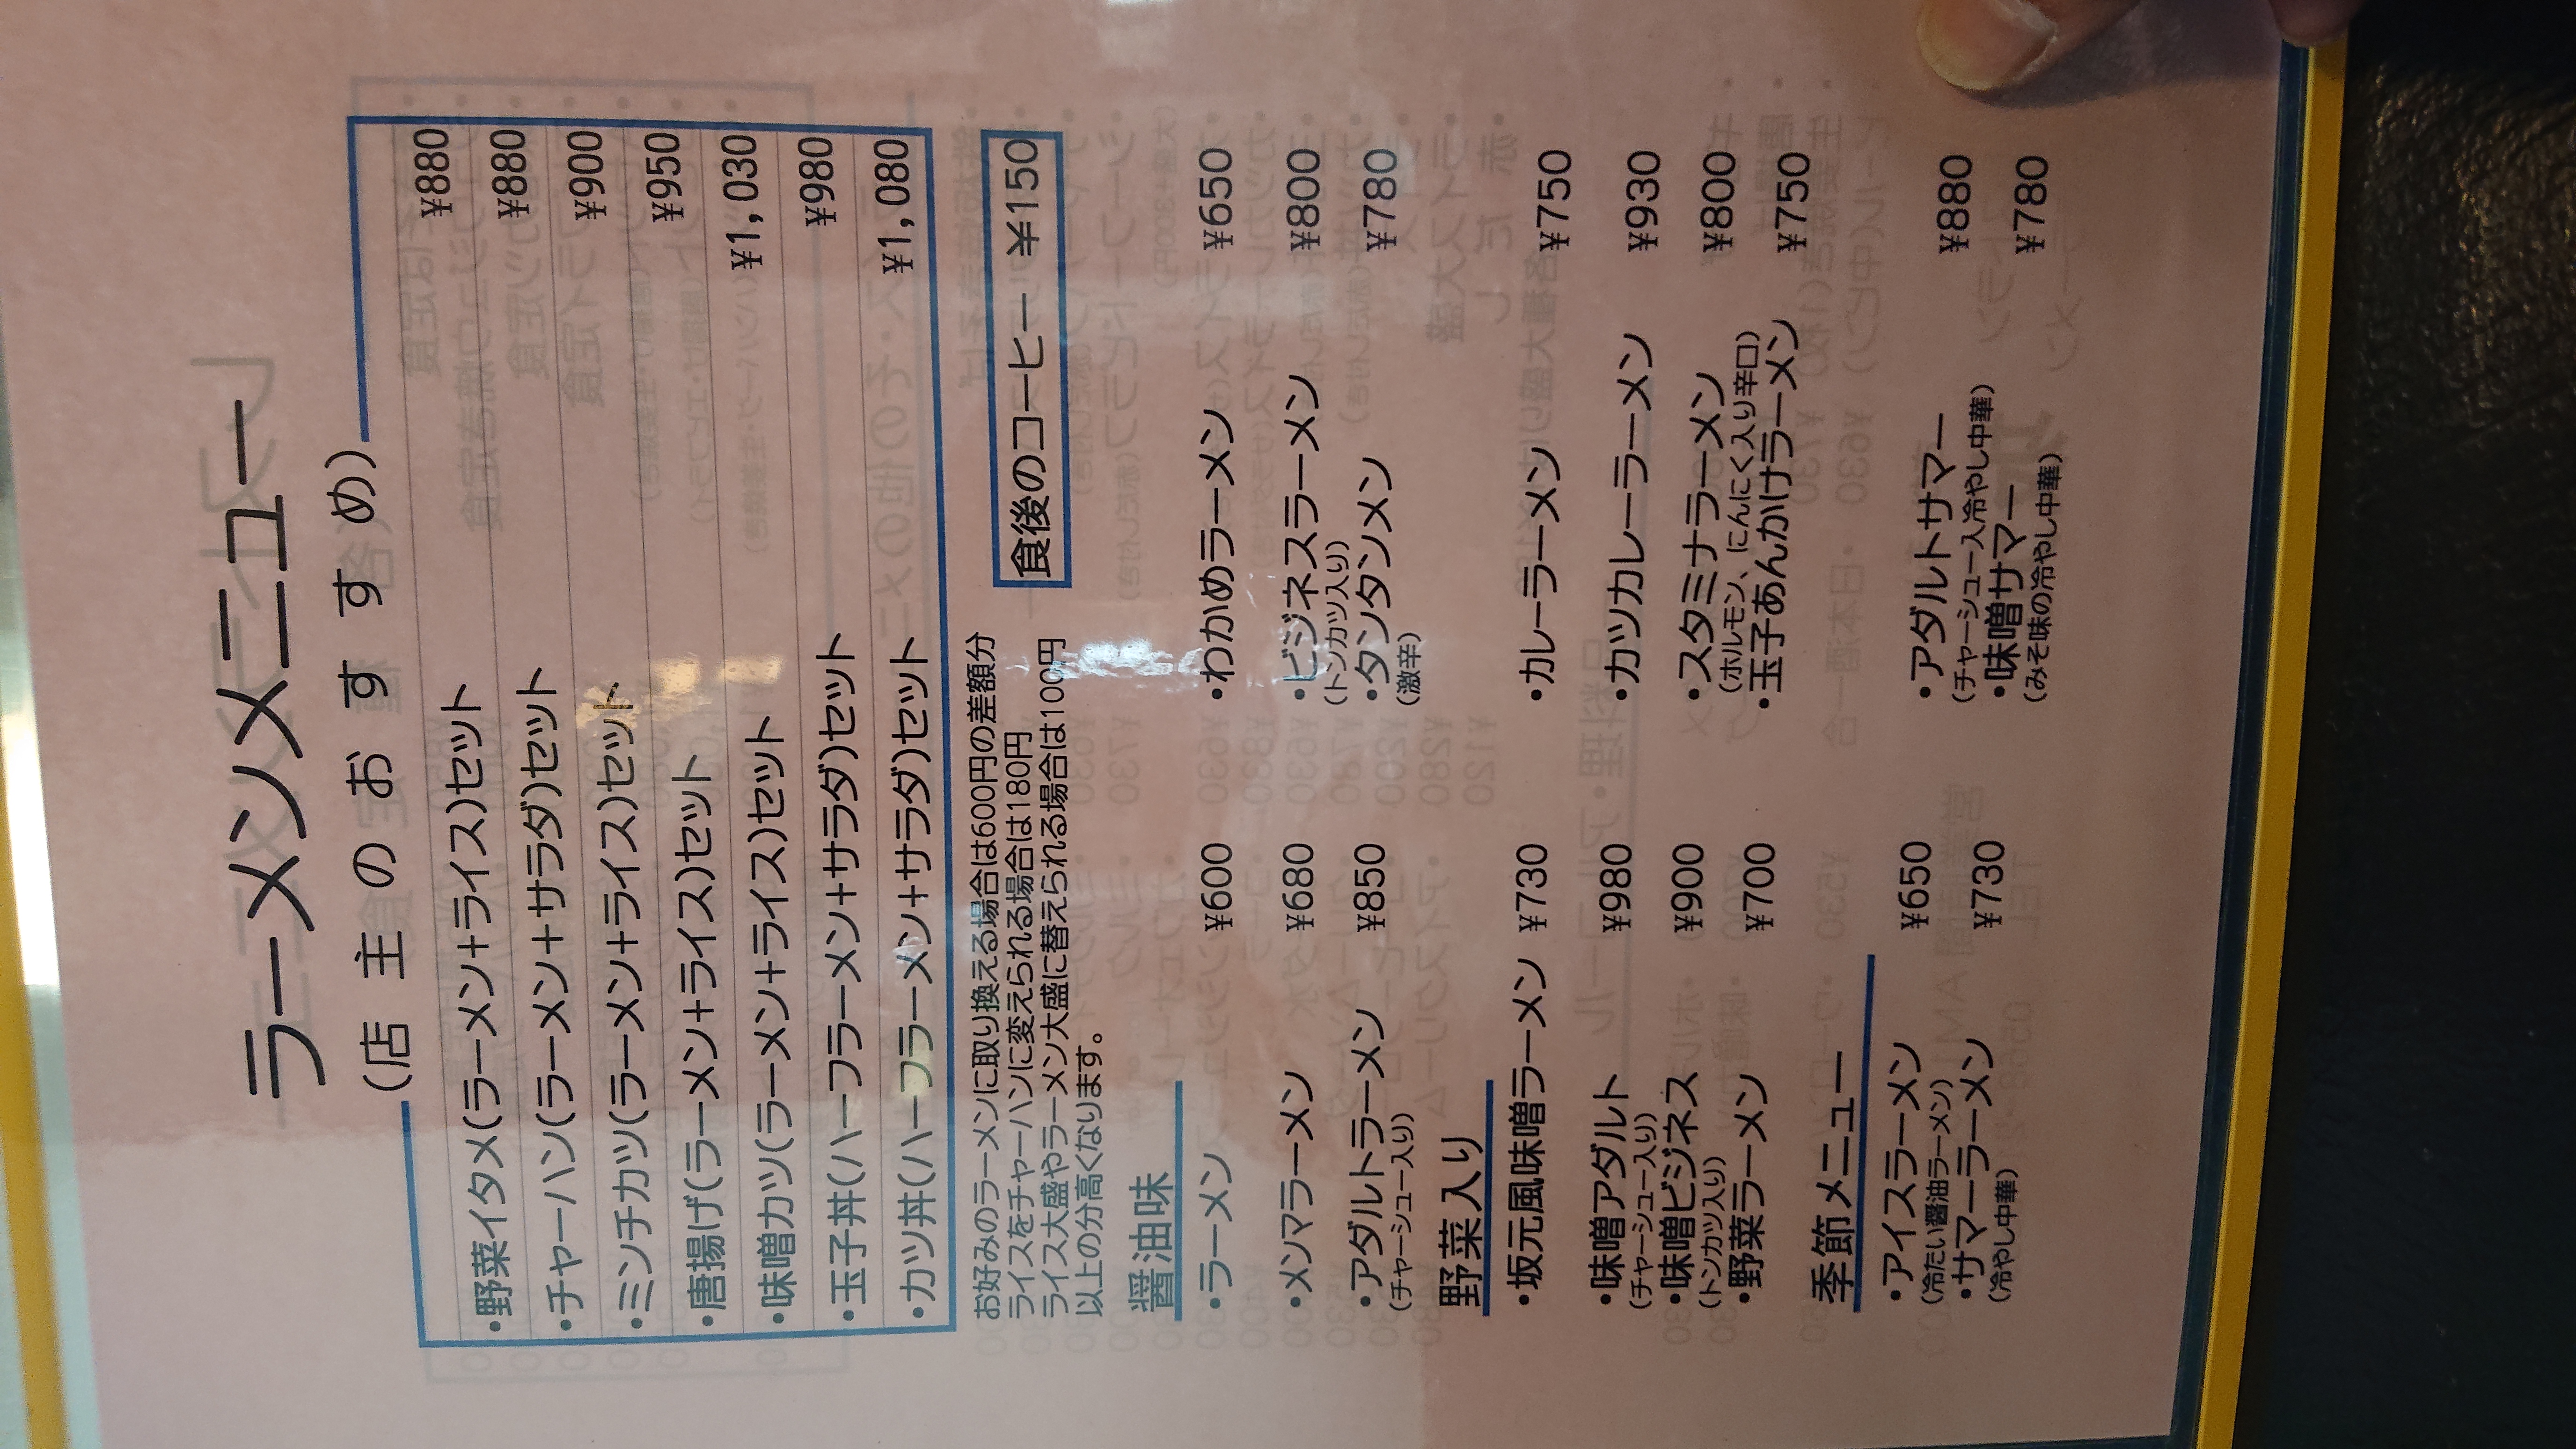 ラーメンメニュー
(店主のおすすめ)
・野菜イタメ(ラーメン+ライス)セット ¥880
・チャーハン(ラーメン+サラダ)セット ¥880
・ミンチカツ(ラーメン+ライス)セット ¥900
・唐揚げ(ラーメン+ライス)セット ¥950
・味噌カツ(ラーメン+ライス)セット ¥1,030
・玉子丼(ハーフラーメン+サラダ)セット ¥980
・カツ丼(ハーフラーメン+サラダ)セット ¥1,080
お好みのラーメンに取り換える場合は600円の差額分
ライスをチャーハンに変えられる場合は180円
ライス大盛やラーメン大盛に替えられる場合は100円
以上の分高くなります。
食後のコーヒー ¥150
醤油味
・ラーメン ¥600 ・わかめラーメン ¥650
・メンマラーメン ¥680 ・ビジネスラーメン ¥800
(トンカツ入り)
・アダルトラーメン ¥850 ・タンタンメン ¥780
(チャーシュー入り) (激辛)
野菜入り
・坂元風味噌ラーメン ¥730 ・カレーラーメン ¥750
・味噌アダルト ¥980 ・カツカレーラーメン ¥930
(チャーシュー入り)
・味噌ビジネス ¥900 ・スタミナラーメン ¥800
(トンカツ入り) (ホルモン、にんにく入り辛口)
・野菜ラーメン ¥700 ・玉子あんかけラーメン ¥750
季節メニュー
・アイスラーメン ¥650 ・アダルトサマー ¥880
(冷たい醤油ラーメン) (チャーシュー入冷やし中華)
・サマーラーメン ¥730 ・味噌サマー ¥780
(冷やし中華) (みそ味の冷やし中華)